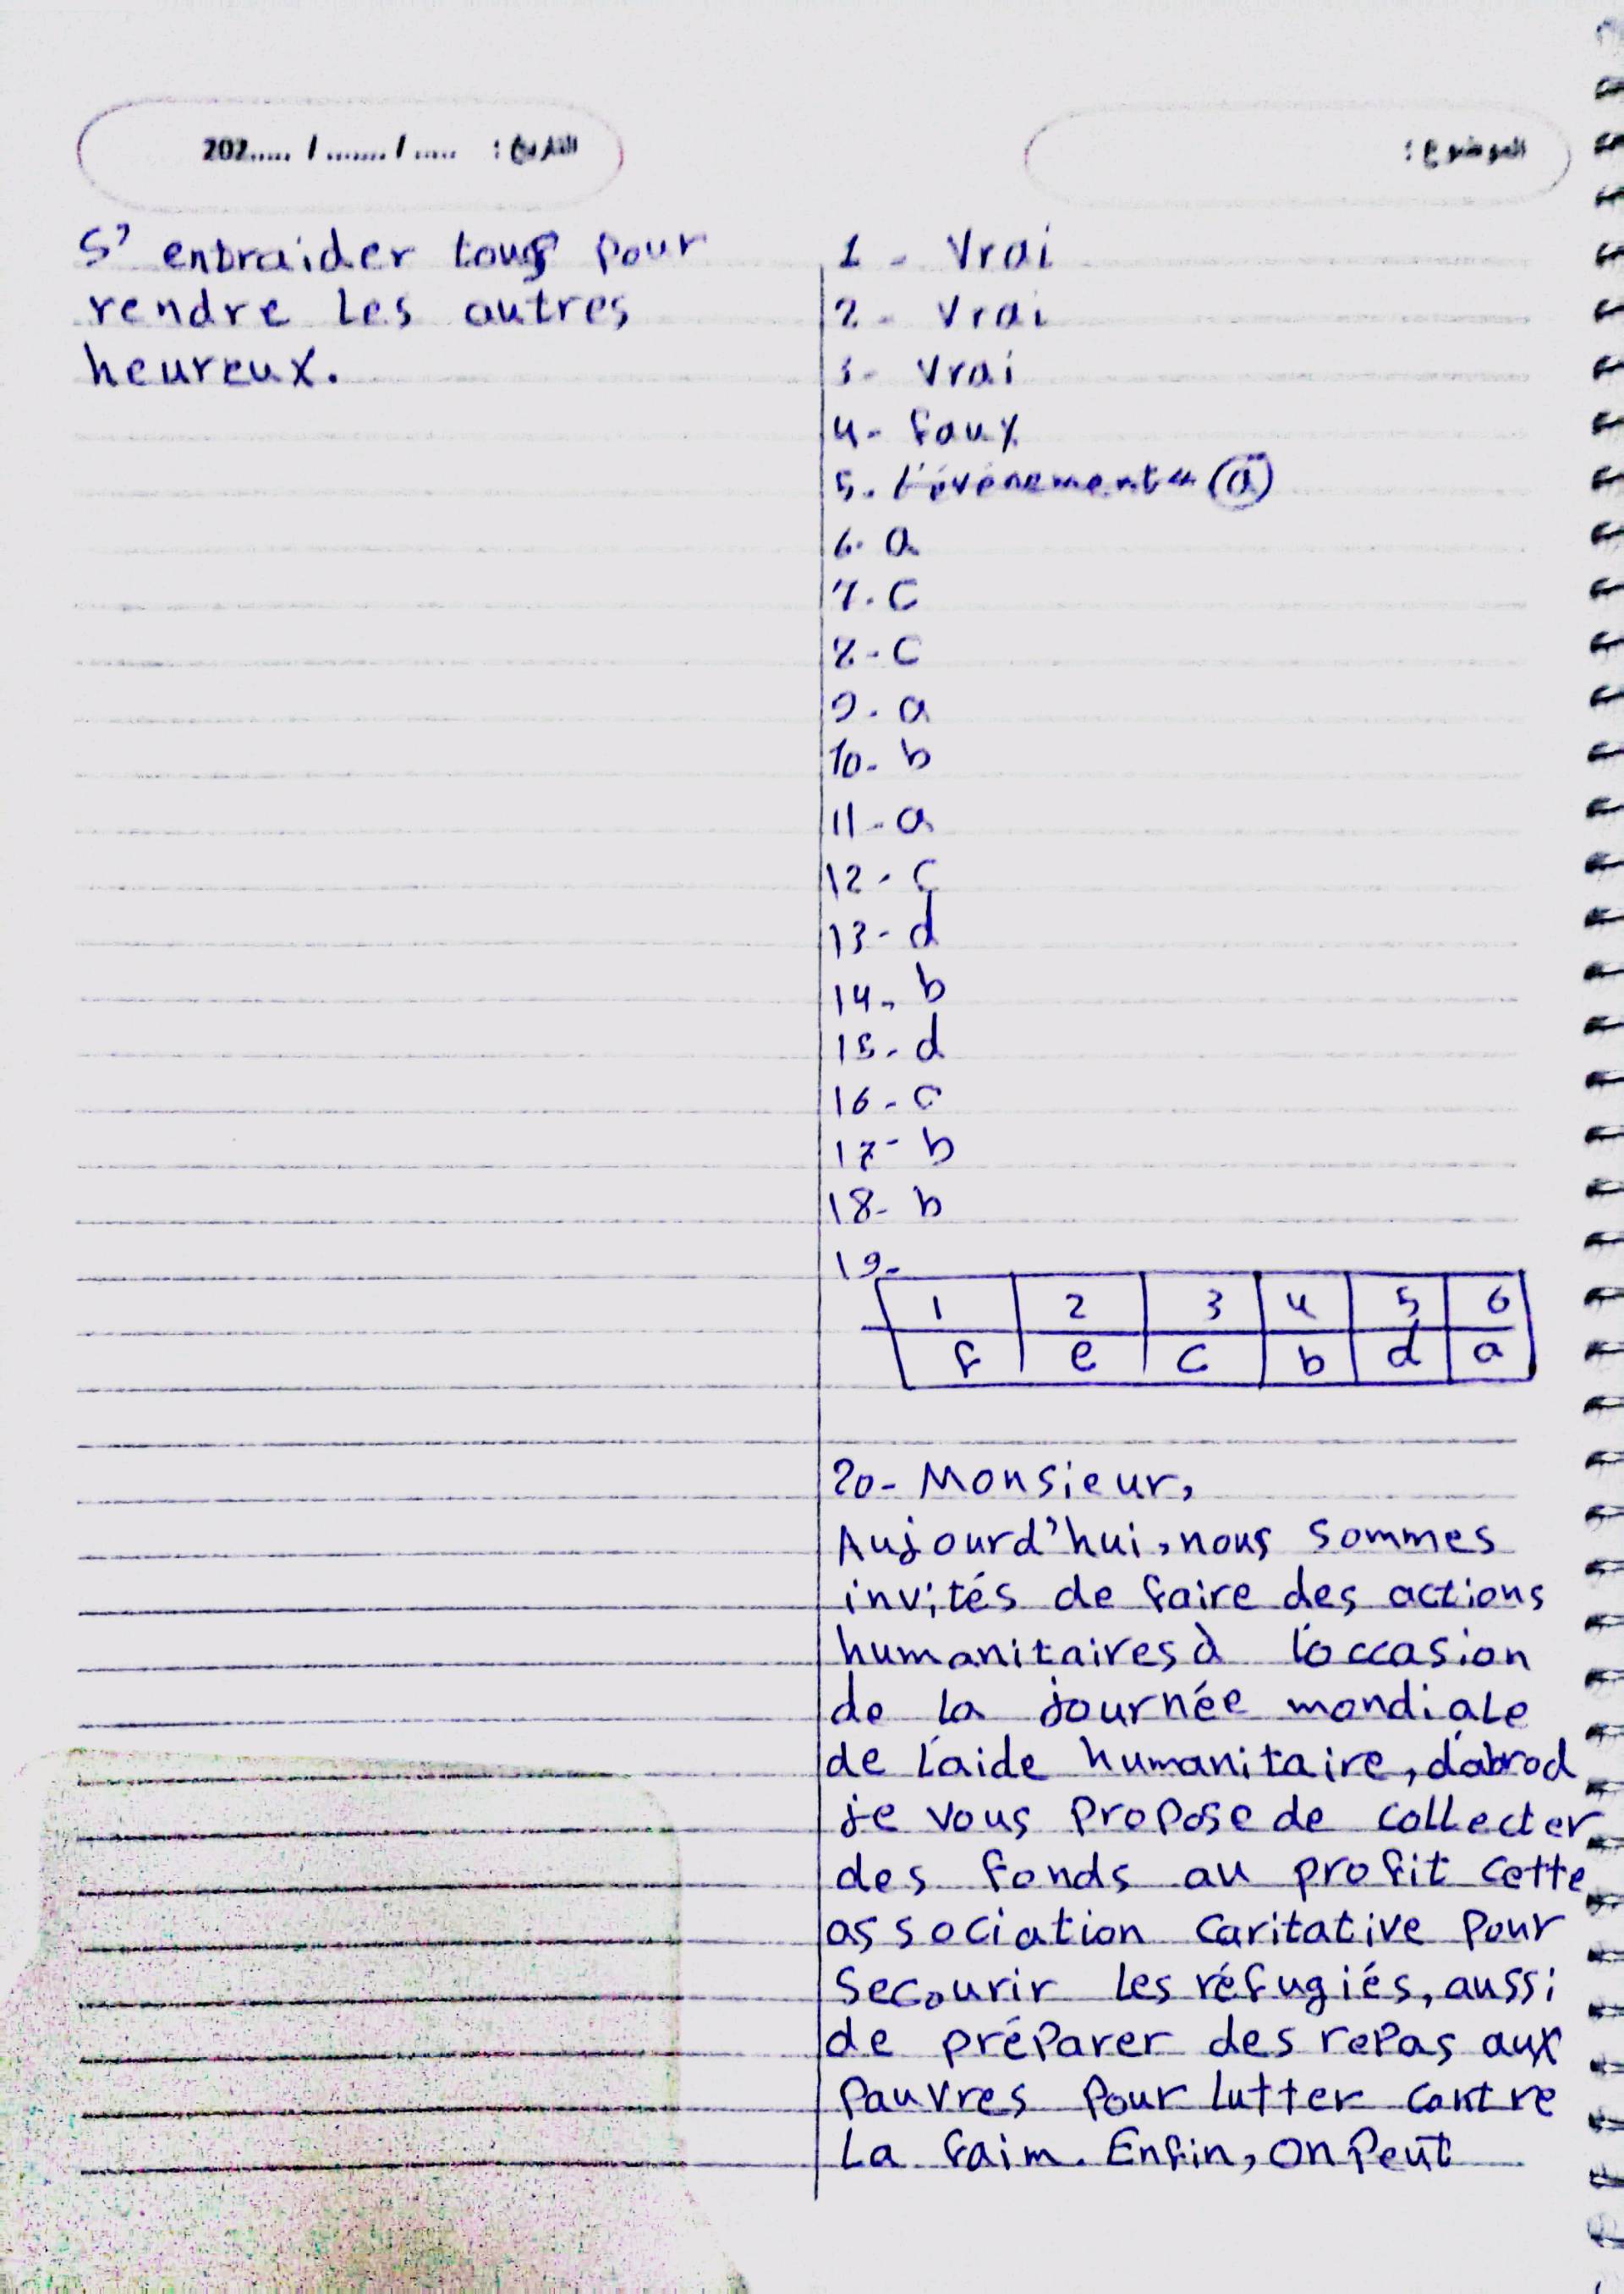 الموضوع :
التاريخ : ..... / ....... / .....202
1 - Vrai
2 - Vrai
3 - Vrai
4 - faux
5. l'événement " (a)
6. a
7. C
8 - C
9 - a
10 - b
11 - a
12 - c
13 - d
14 - b
15 - d
16 - c
17 - b
18 - b
19 -
1 2 3 4 5 6
f e c b d a
20 - Monsieur,
Aujourd'hui, nous sommes
invités de faire des actions
humanitaires à l'occasion
de la journée mondiale
de l'aide humanitaire, d'abrod
je vous propose de collecter
des fonds au profit cette
association caritative pour
secourir les réfugiés, aussi
de préparer des repas aux
pauvres pour lutter contre
la faim. Enfin, on peut
s'entraider tous pour
rendre les autres
heureux.